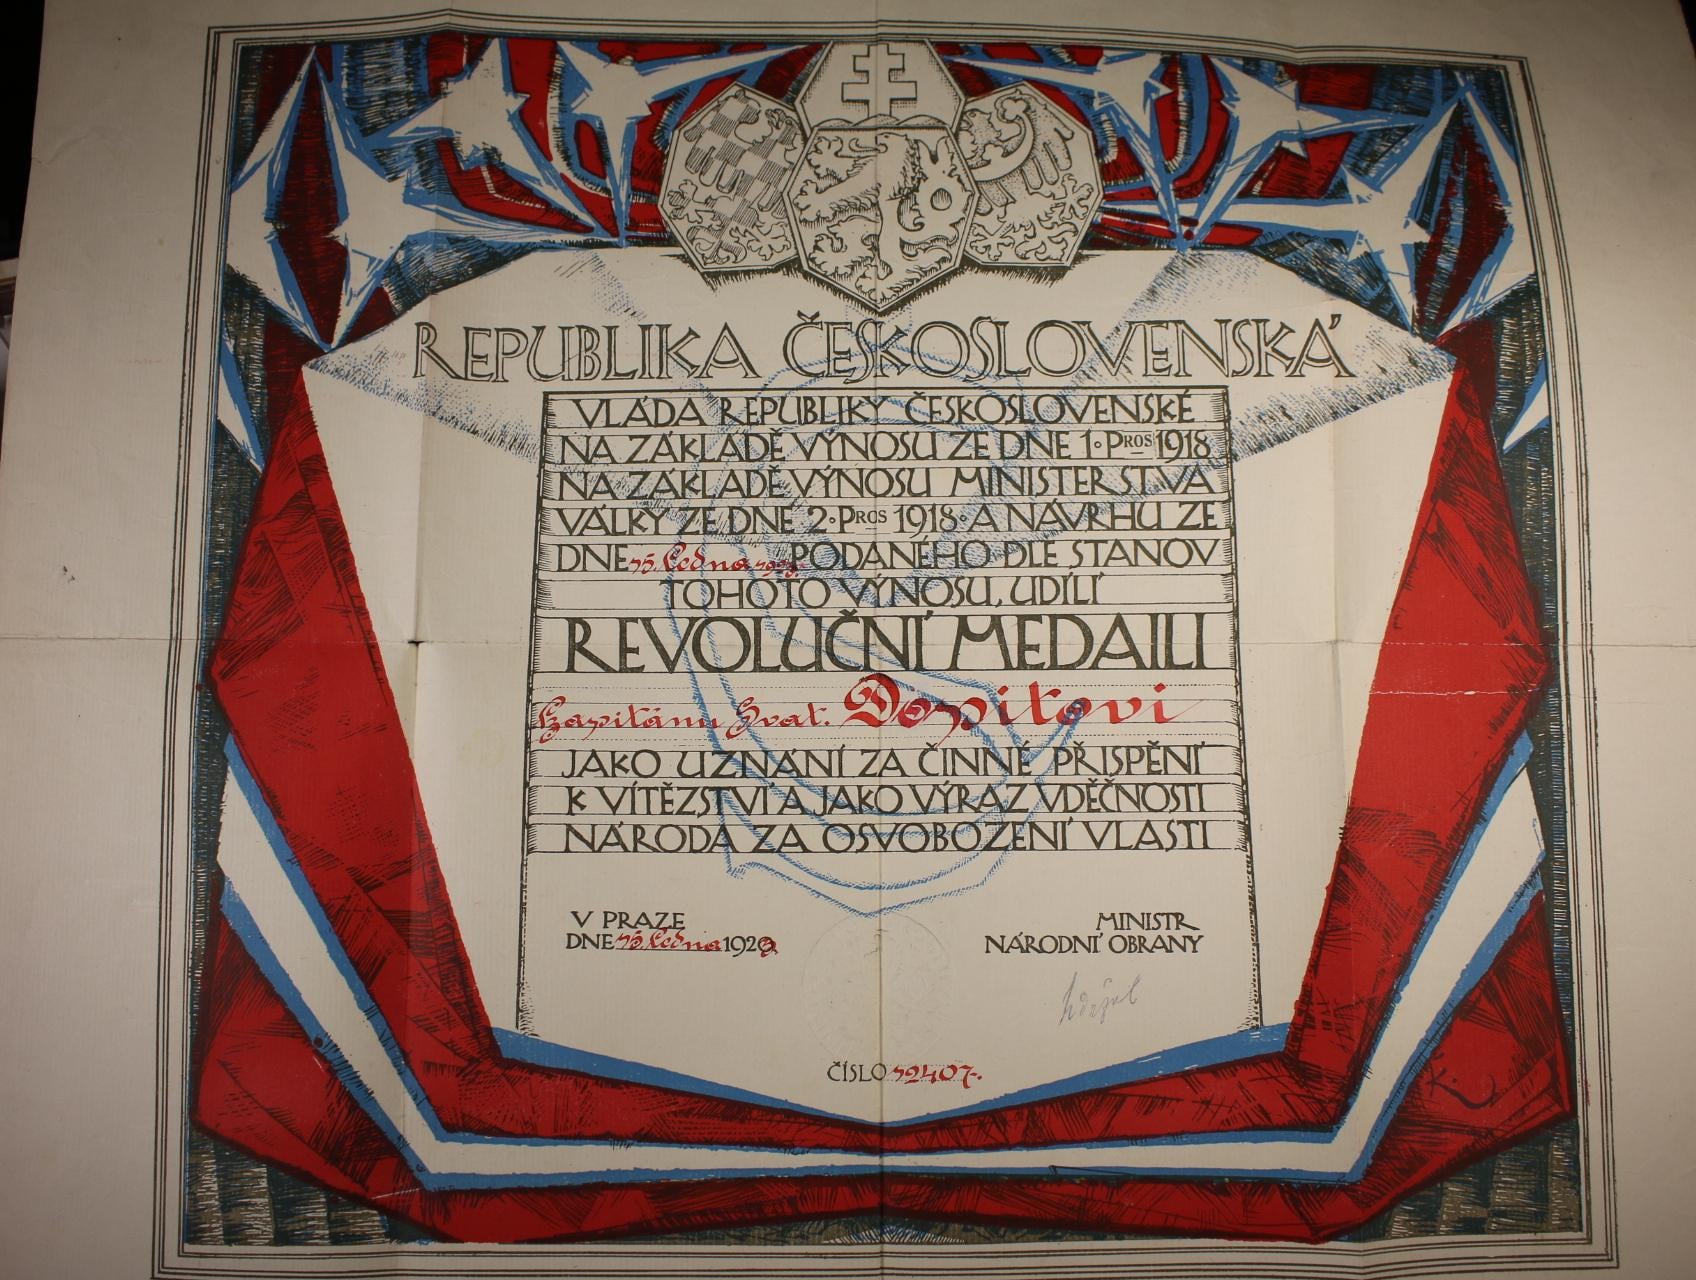 REPUBLIKA ČESKOSLOVENSKÁ
VLÁDA REPUBLIKY ČESKOSLOVENSKÉ
NA ZÁKLADĚ VÝNOSU ZE DNE 1. PROS 1918
NA ZÁKLADĚ VÝNOSU MINISTERSTVA
VÁLKY ZE DNE 2. PROS 1918. A NÁVRHU ZE
DNE 15. ledna PODANÉHO DLE STANOV
TOHOTO VÝNOSU, UDÍLÍ
REVOLUČNÍ MEDAILI
kapitánu Svat. Dopitovi
JAKO UZNÁNÍ ZA ČINNÉ PŘISPĚNÍ
K VÍTĚZSTVÍ A JAKO VÝRAZ VDĚČNOSTI
NÁRODA ZA OSVOBOZENÍ VLASTI
V PRAZE
DNE 15. ledna 1923.
MINISTR
NÁRODNÍ OBRANY
ČÍSLO 12407.